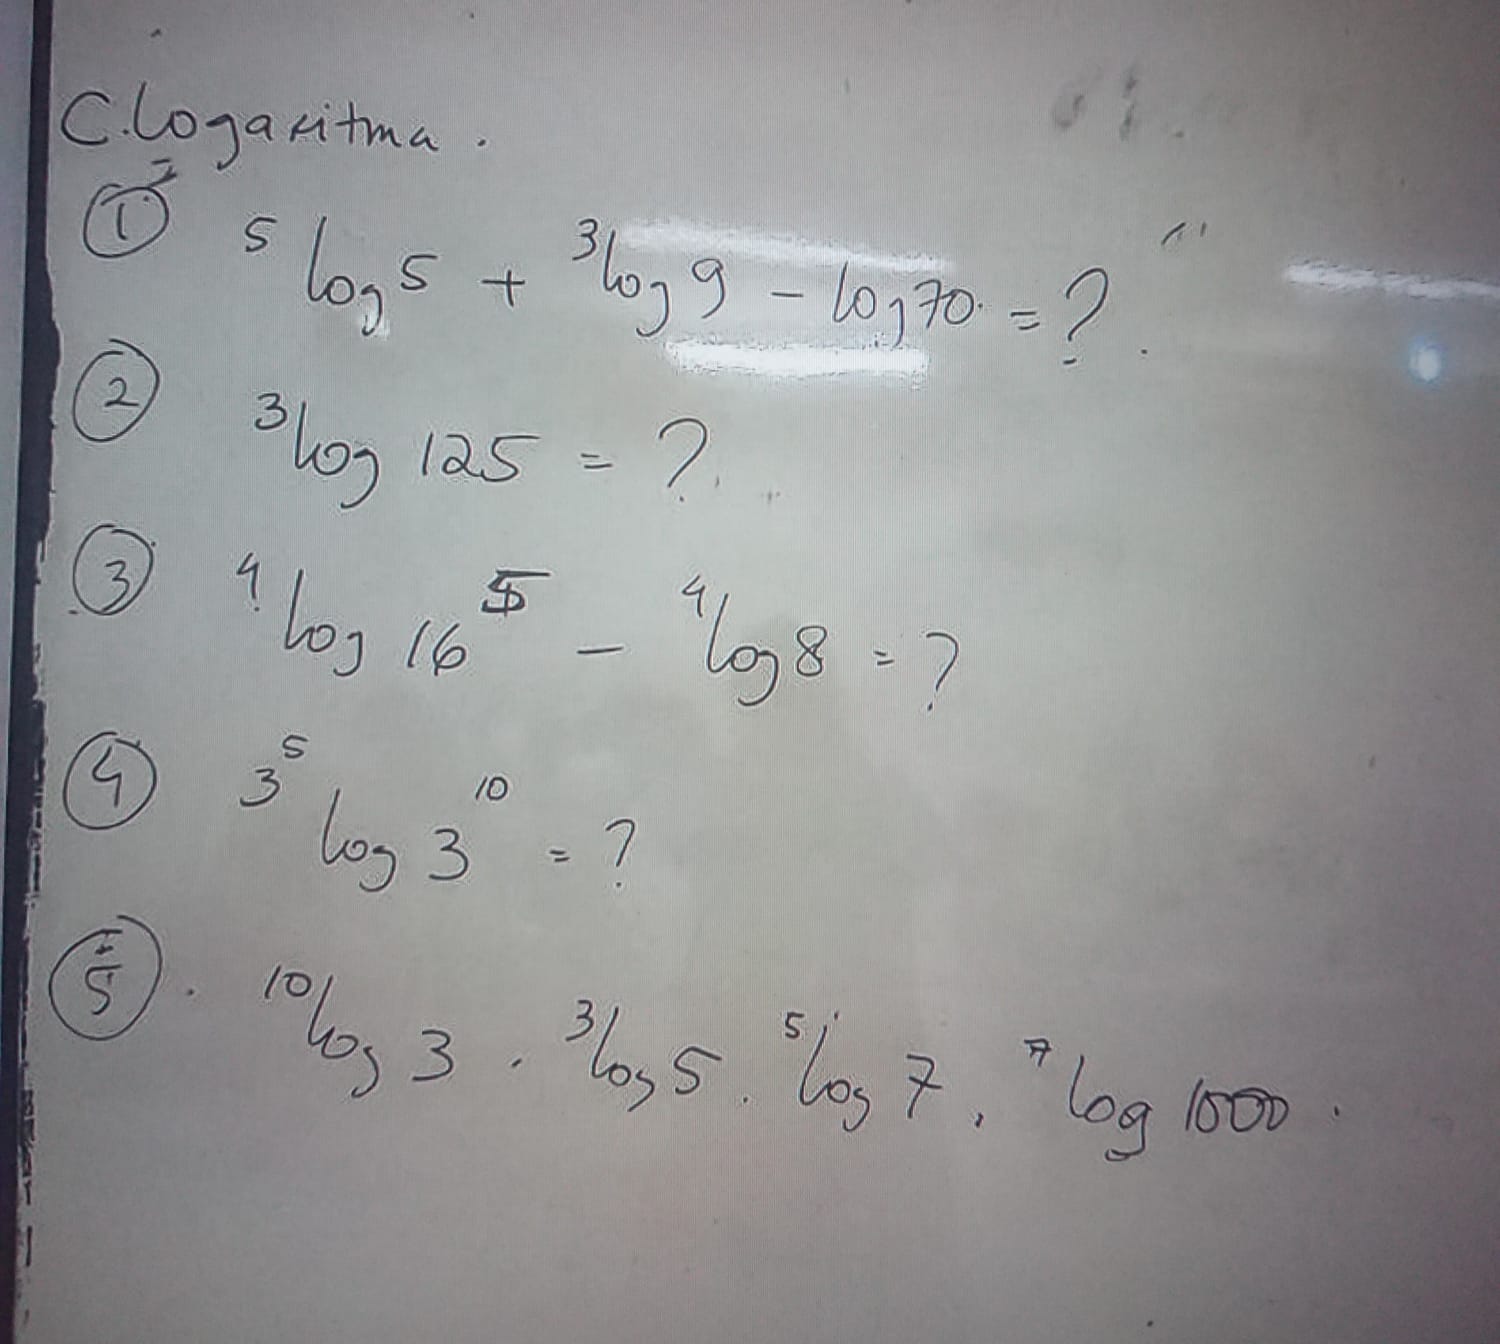 C. Logaritma.
① ⁵log 5 + ³log 9 - log 70 = ?
② ³log 125 = ?
③ ⁴log 16⁵ - ⁴log 8 = ?
④ 3⁵ log 3¹⁰ = ?
⑤. ¹⁰log 3 . ³log 5 . ⁵log 7 . ⁷log 1000.